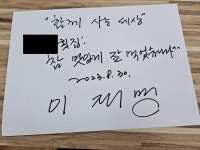 "함께 사는 세상"
횟집!
참 맛있게 잘 먹었습니다..
2023. 8. 30.
이 재 명